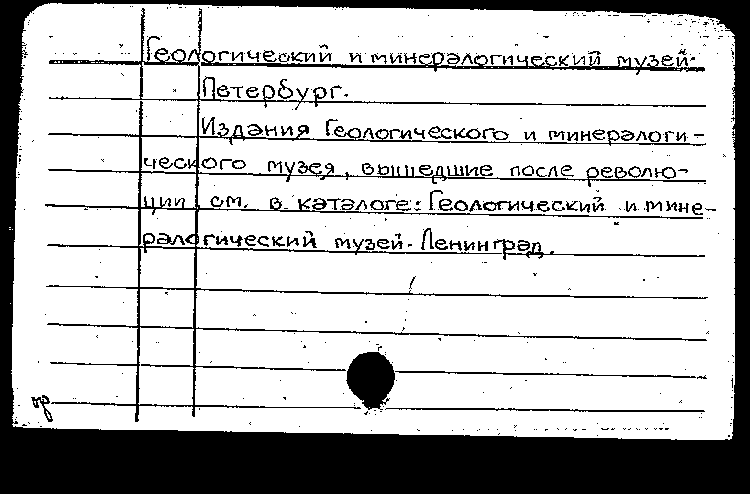 Геологический и минералогический музей.
Петербург.
Издания Геологического и минералоги-
ческого музея, вышедшие после револю-
ции см. в каталоге: Геологический и мине-
ралогический музей. Ленинград.